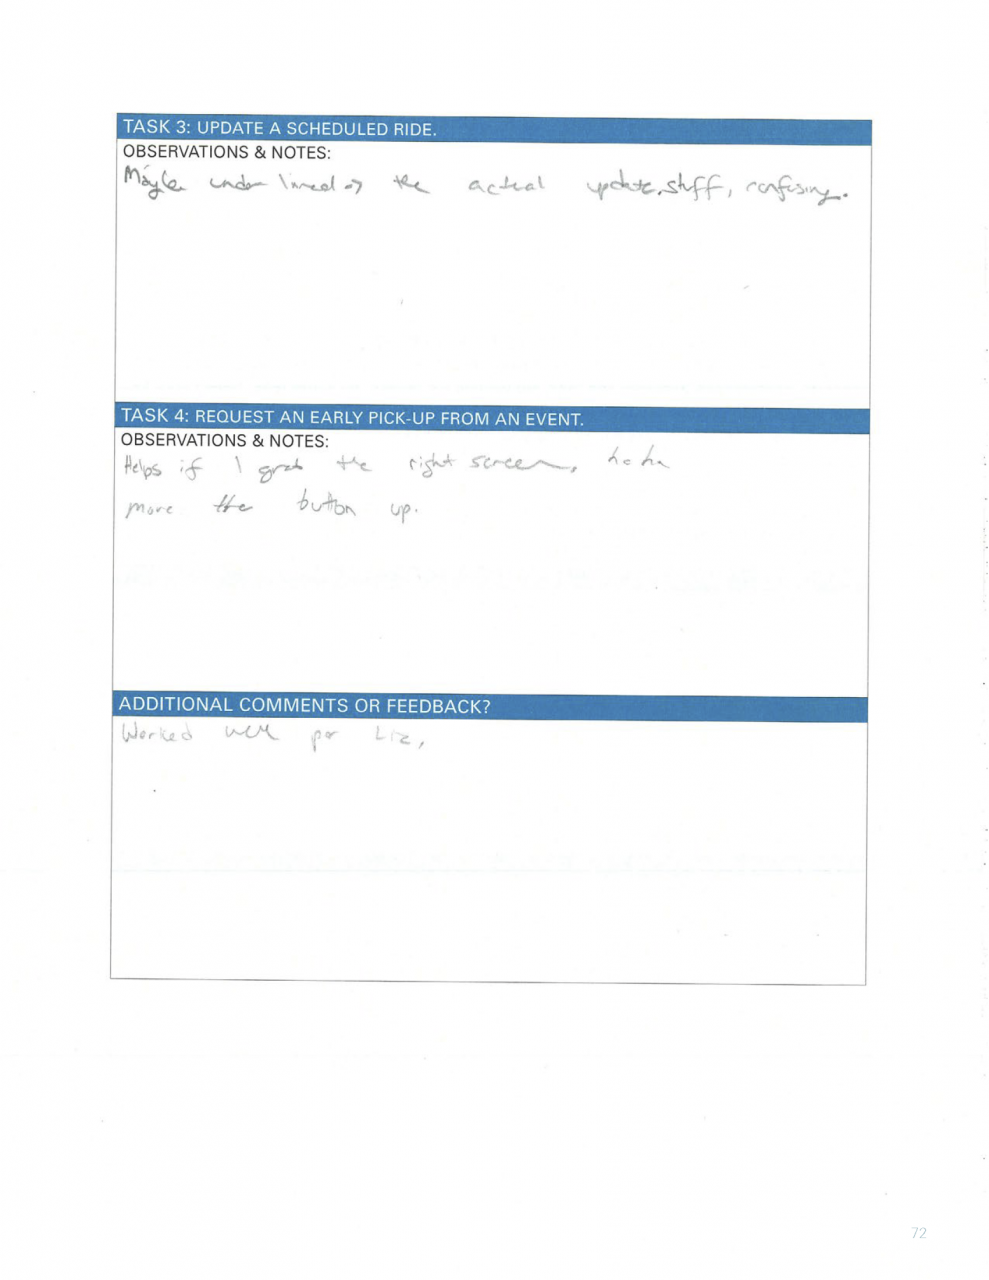 TASK 3: UPDATE A SCHEDULED RIDE.
OBSERVATIONS & NOTES:
Maybe under lined the actual update stuff, confusing.
TASK 4: REQUEST AN EARLY PICK-UP FROM AN EVENT.
OBSERVATIONS & NOTES:
Helps if I grab the right screen, haha
move the button up.
ADDITIONAL COMMENTS OR FEEDBACK?
Worked well per Liz,
72